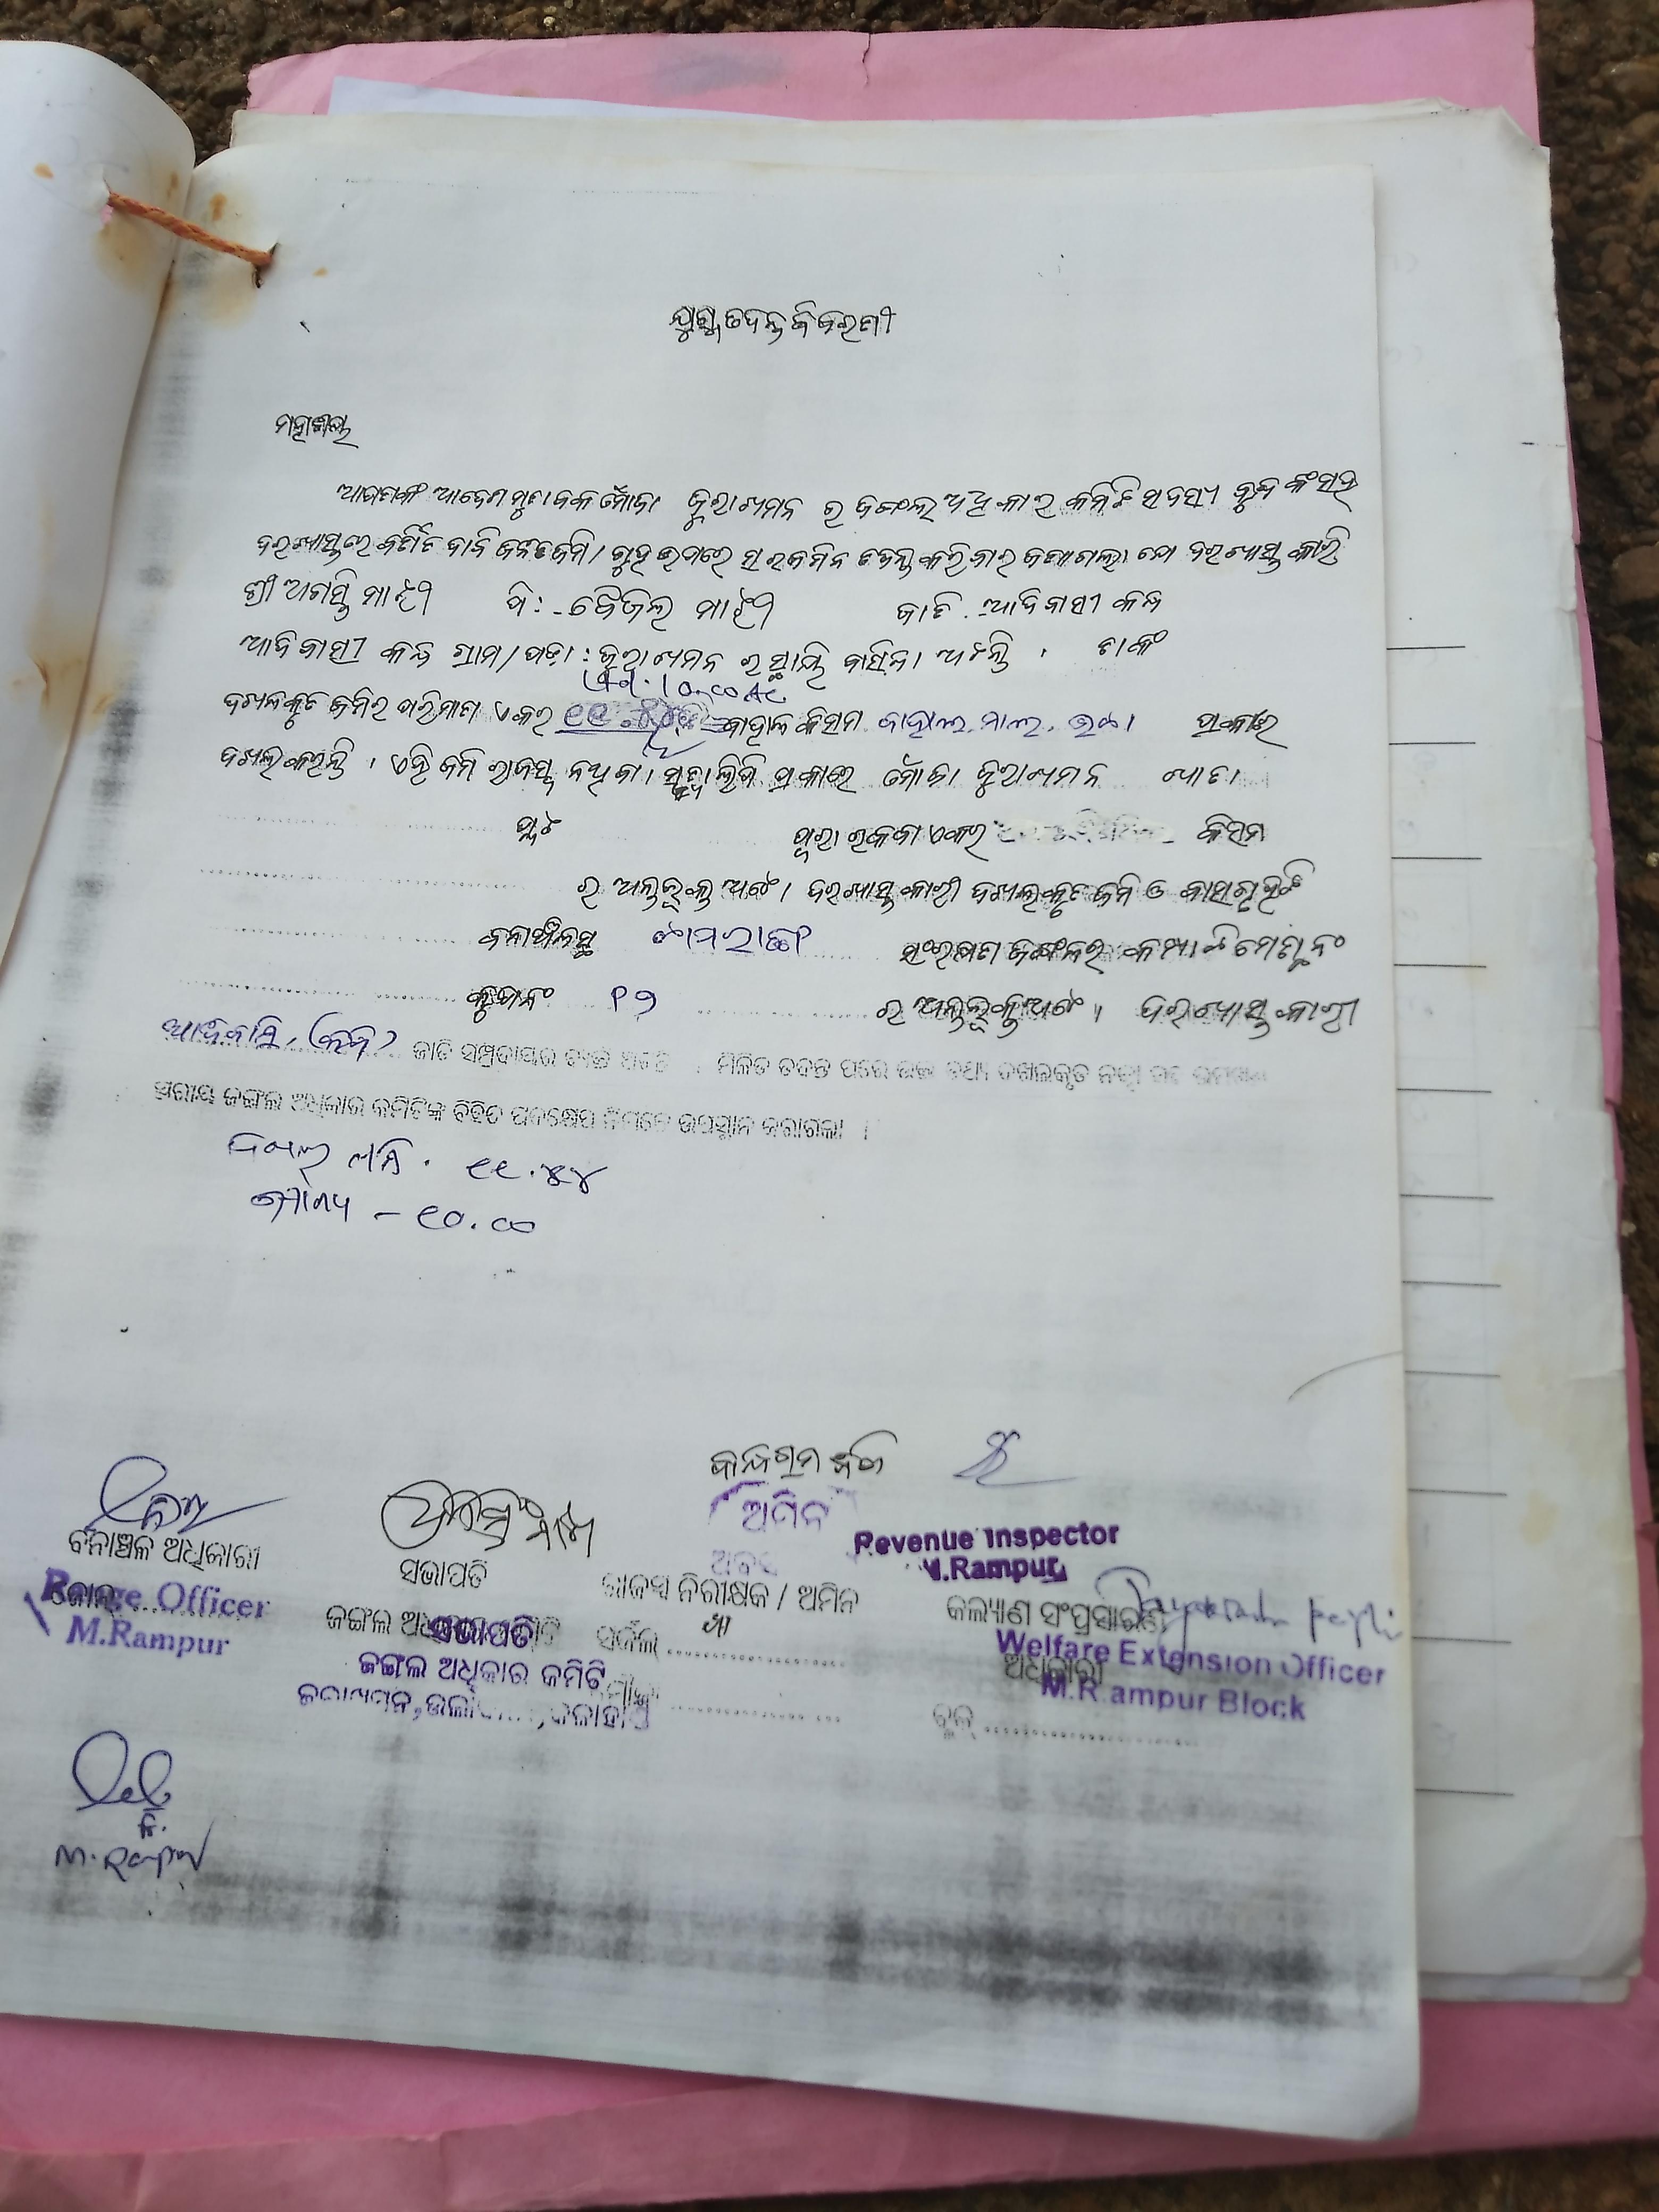 ଯୁଗ୍ମ ତଦନ୍ତ ବିବରଣୀ
ମହାଶୟ
ଆପଣଙ୍କ ଆଦେଶ ମୁତାବକ ମୌଜା ଜୁରାଖମନ ର ଜଙ୍ଗଲ ଅଧିକାର କମିଟି ସଦସ୍ୟ ବୃନ୍ଦଙ୍କ ସହ
ଦରଖାସ୍ତରେ ବର୍ଣିତ ଦାବି ଜନିତ ଜମି / ଗୃହ ଉପରେ ସରଜମିନ ତଦନ୍ତ କରିବାର ଜଣାଗଲା ଯେ ଦରଖାସ୍ତ କାରୀ
ଶ୍ରୀ ଅଗସ୍ତି ମାଝୀ ପି: - ମାଝୀ ଜାତି - ଆଦିବାସୀ କନ୍ଧ
ଆଦିବାସୀ କନ୍ଧ ଗ୍ରାମ/ପଡ଼ା : ଜୁରାଖମନ ର ସ୍ଥାୟି ବାସିନ୍ଦା ଅଟନ୍ତି । ତାଙ୍କ
10.00 Ac
ଦଖଲକୃତ ଜମିର ପରିମାଣ ଏକର କିସମ ବାହାଲ, ମାଲ, ଭଟା ପ୍ରକାର
ଦଖଲ କରନ୍ତି । ଏହି ଜମି ରାଜସ୍ୱ ନଥିବା ପ୍ରକାରେ ମୌଜା ଜୁରାଖମନ ଖାତା
ପ୍ଲଟ ପୁରା ରକବା ଏକର କିସମ
ର ଅନ୍ତର୍ଭୁକ୍ତ ଅଟେ । ଦରଖାସ୍ତ କାରୀ ଦଖଲକୃତ ଜମି ଓ ବାସଗୃହଟି
ବନାଞ୍ଚଳସ୍ଥ ସଂରକ୍ଷଣ ଜଙ୍ଗଲର କମ୍ପାର୍ଟମେଣ୍ଟ ନଂ
ବ୍ଲକ ନଂ ର ଅନ୍ତର୍ଭୁକ୍ତ ଅଟେ । ଦରଖାସ୍ତ କାରୀ
ଆଦିବାସି, (କନ୍ଧ) ଜାତି ସମ୍ପ୍ରଦାୟର ଅଟେ । ମିଳିତ ତଦନ୍ତ ପରେ ଉକ୍ତ ତଥ୍ୟ ଦଖଲକୃତ ନକ୍ସା ସହ
ଜଙ୍ଗଲ ଅଧିକାର କମିଟିଙ୍କ ବିହିତ ପଦକ୍ଷେପ ନିମନ୍ତେ ଉପସ୍ଥାନ କରାଗଲା ।
ଦଖଲ ଜମି - ୧୧.୪୪
ଯୋଗ୍ୟ - ୧୦.୦୦
ଅମିନ
Revenue Inspector
M.Rampur
ବନାଞ୍ଚଳ ଅଧିକାରୀ
Range Officer
M.Rampur
ସଭାପତି
ଜଙ୍ଗଲ ଅଧିକାର କମିଟି
ସଭାପତି
ଜଙ୍ଗଲ ଅଧିକାର କମିଟି
ରାଜସ୍ୱ ନିରୀକ୍ଷକ / ଅମିନ
ସର୍କଲ
କଲ୍ୟାଣ ସଂପ୍ରସାରଣ
ଅଧିକାରୀ
Welfare Extension Officer
M.Rampur Block
ବ୍ଲକ
M. Rampur